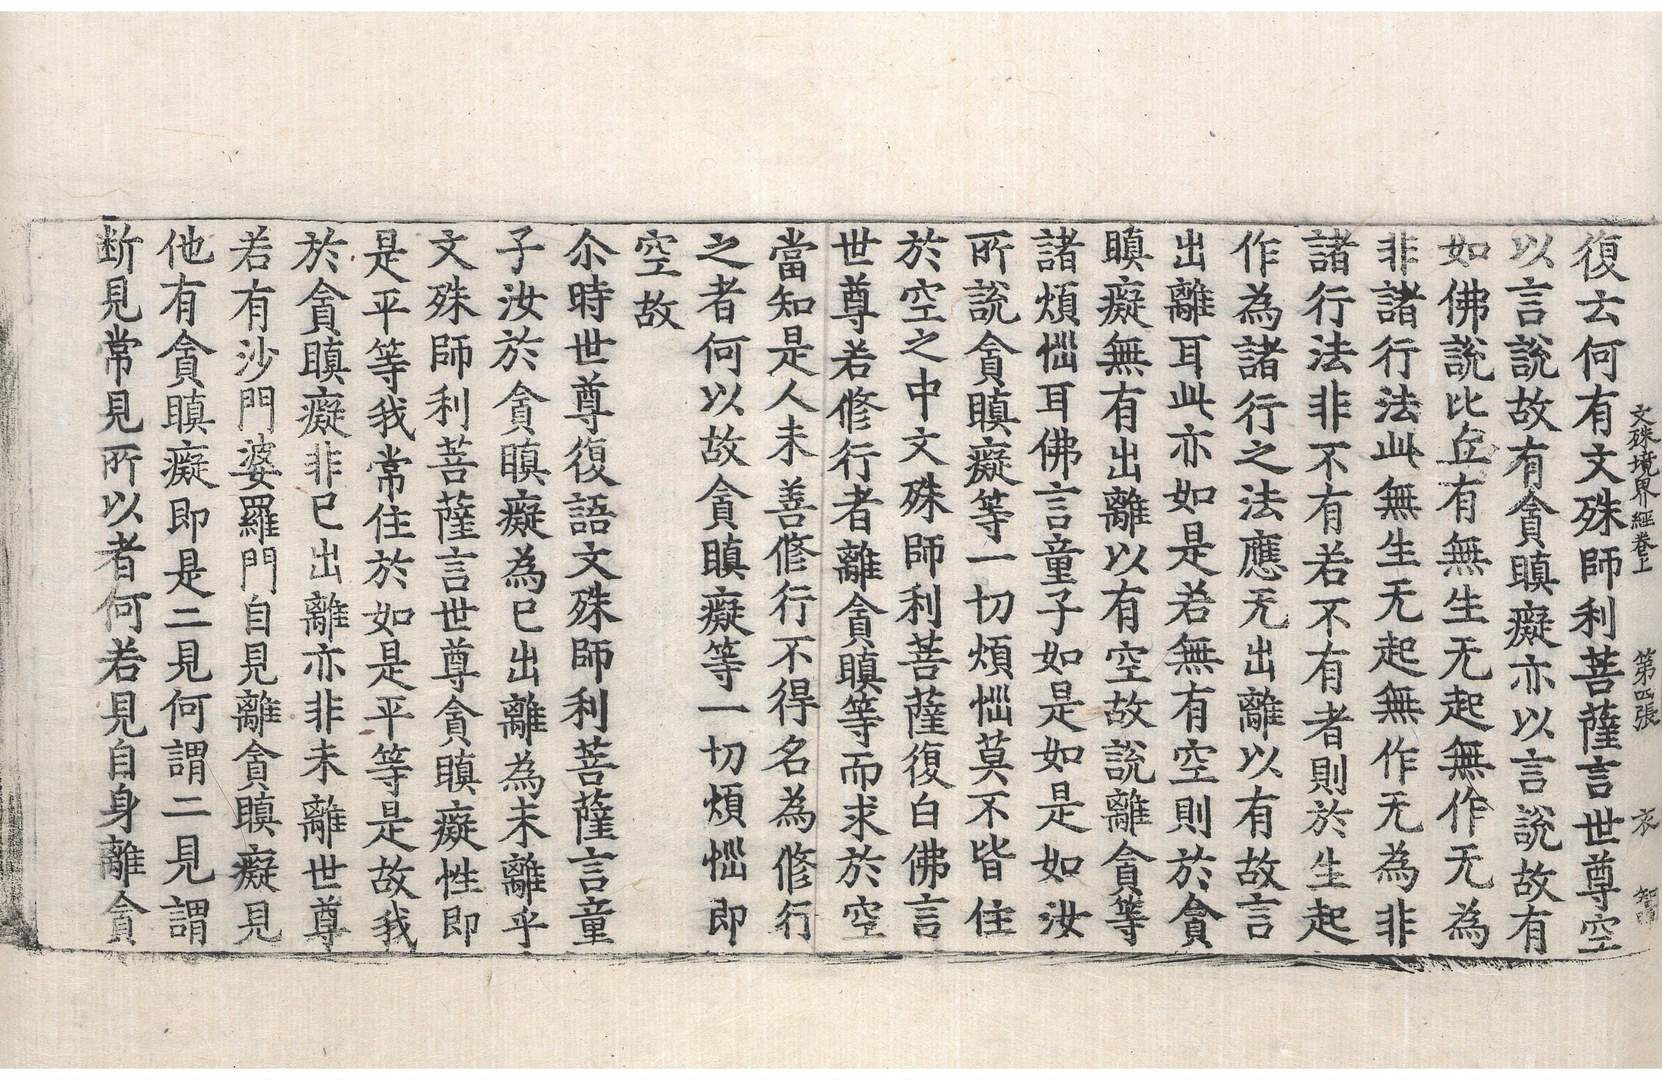 文殊境界經卷上 第四張 衣
復云何有文殊師利菩薩言世尊空
以言說故有貪瞋癡亦以言說故有
如佛說比丘有無生无起無作无為
非諸行法此無生无起無作无為非
諸行法非不有若不有者則於生起
作為諸行之法應无出離以有故言
出離耳此亦如是若無有空則於貪
瞋癡無有出離以有空故說離貪等
諸煩惱耳佛言童子如是如是如汝
所說貪瞋癡等一切煩惱莫不皆住
於空之中文殊師利菩薩復白佛言
世尊若修行者離貪瞋等而求於空
當知是人未善修行不得名為修行
之者何以故貪瞋癡等一切煩惱即
空故
尒時世尊復語文殊師利菩薩言童
子汝於貪瞋癡為已出離為未離乎
文殊師利菩薩言世尊貪瞋癡性即
是平等我常住於如是平等是故我
於貪瞋癡非已出離亦非未離世尊
若有沙門婆羅門自見離貪瞋癡見
他有貪瞋癡即是二見何謂二見謂
断見常見所以者何若見自身離貪